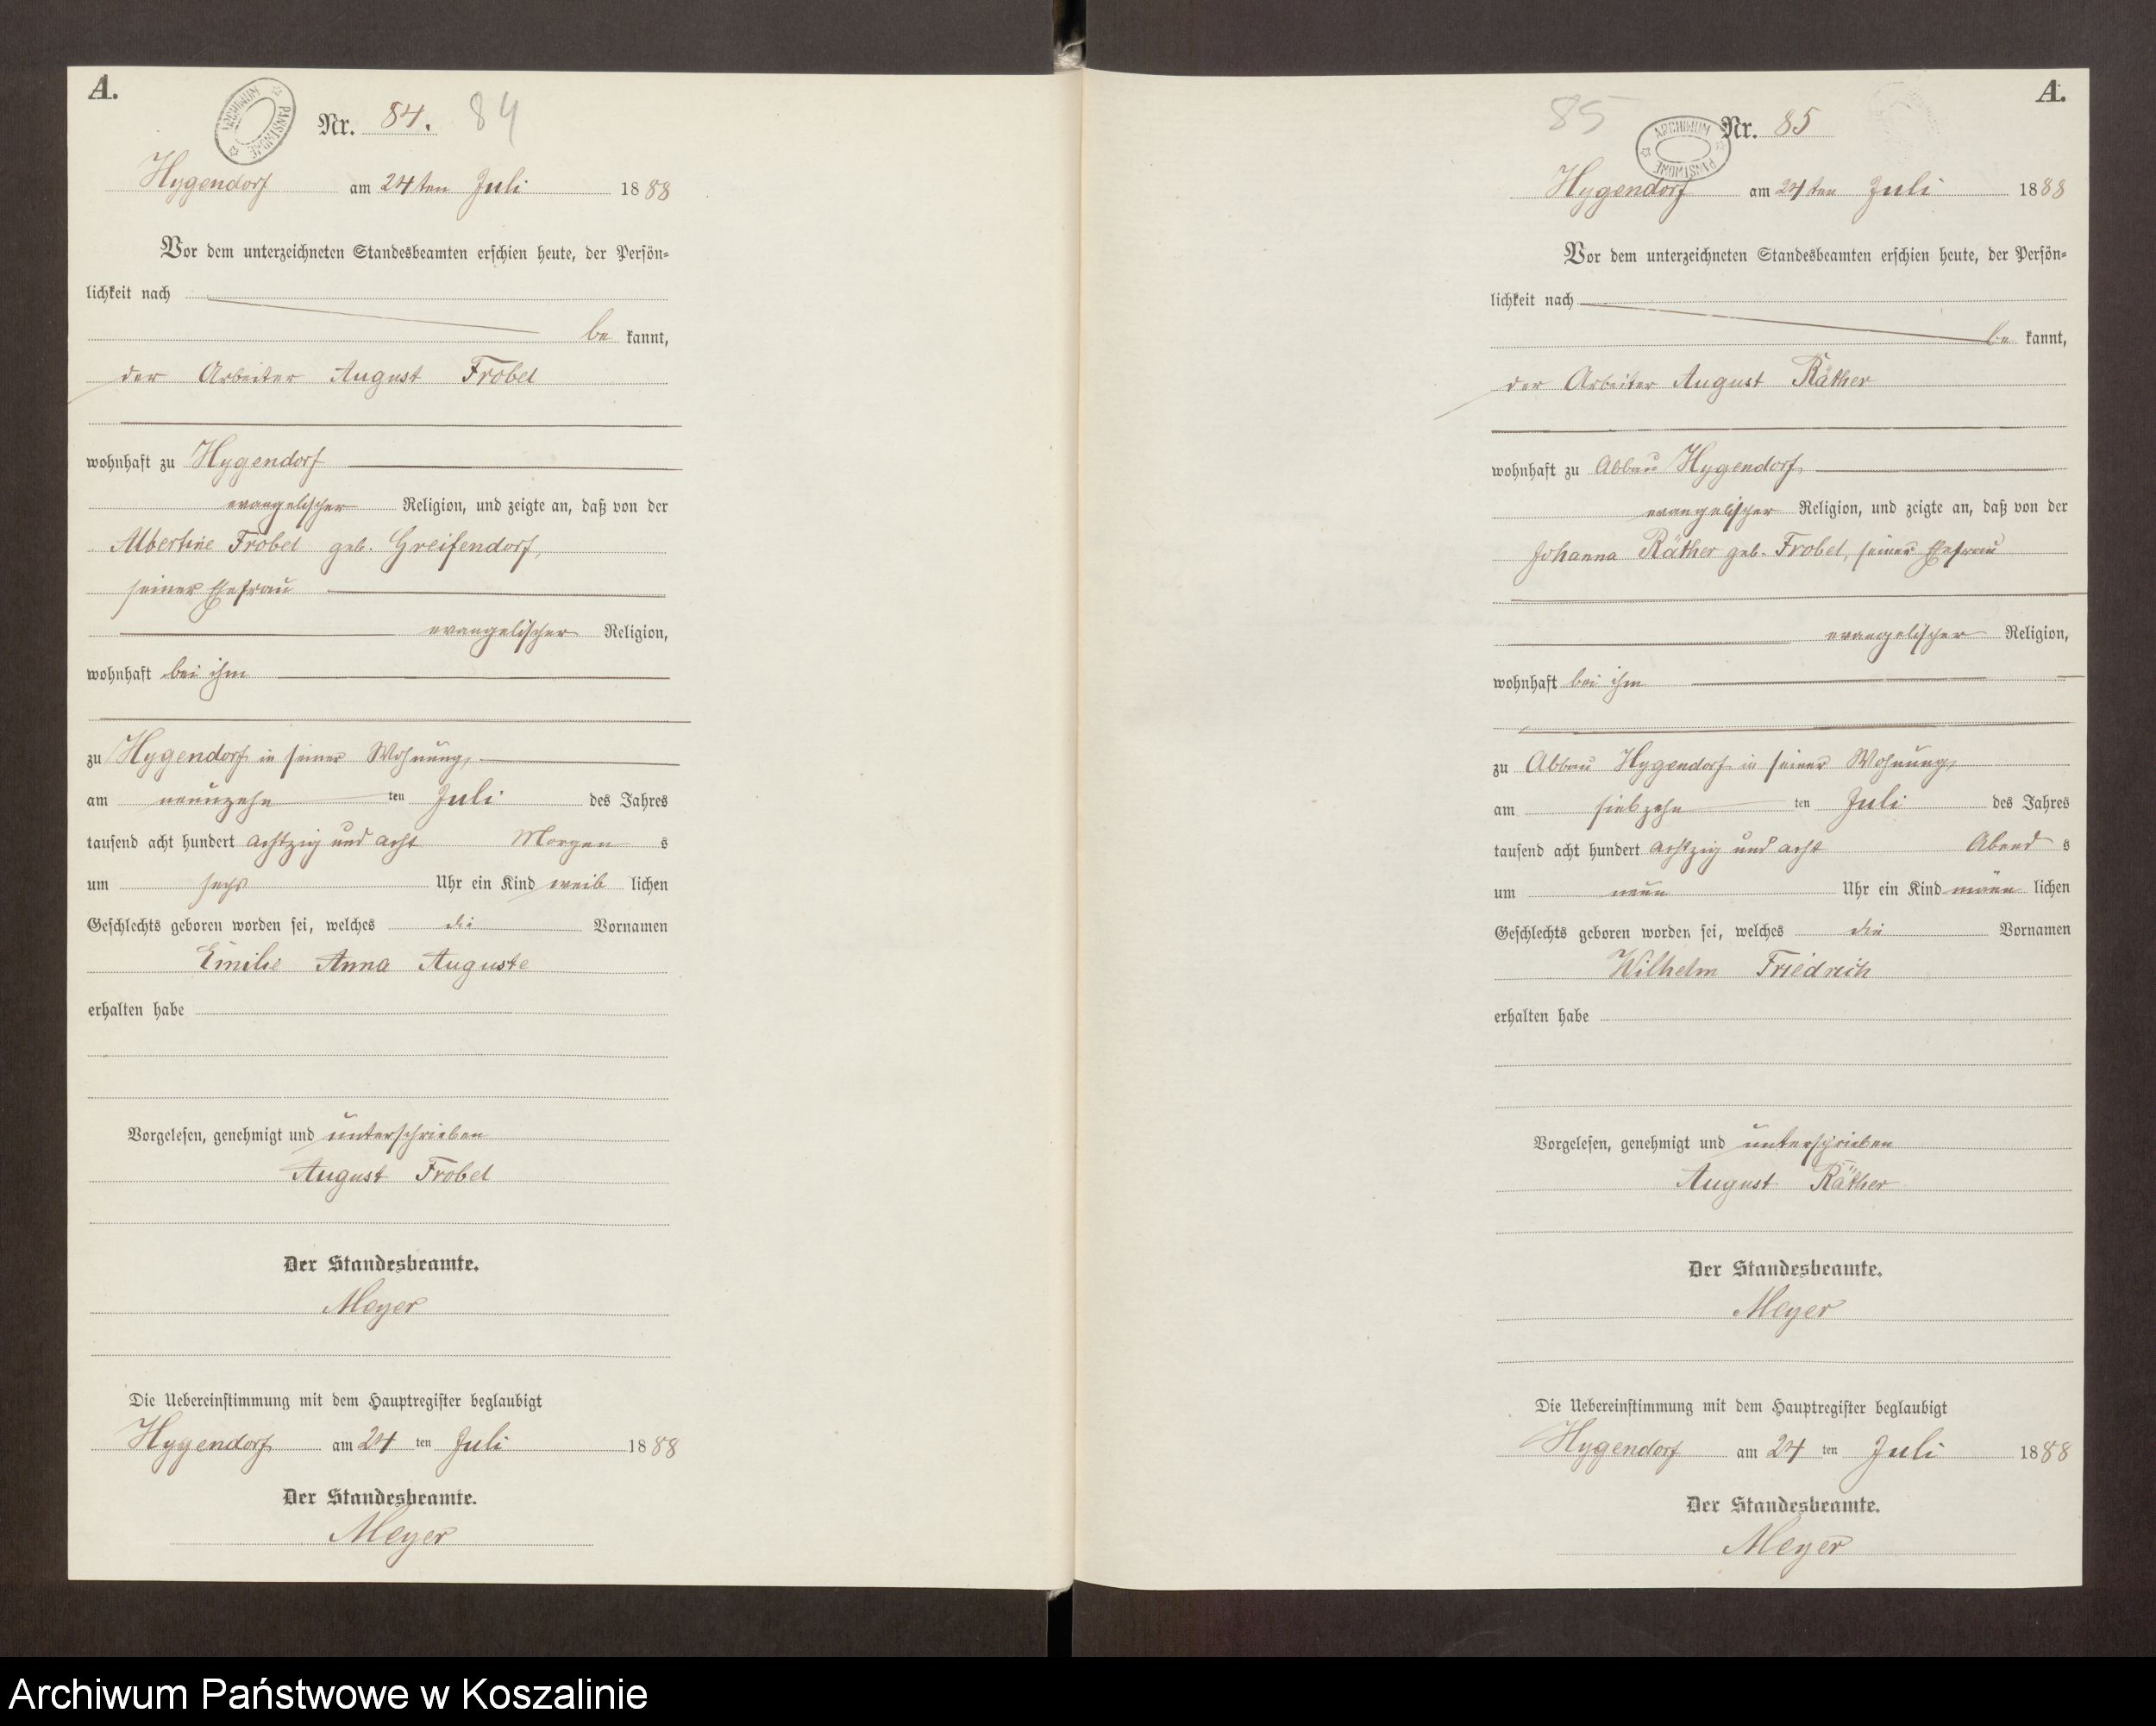 A.
ARCHIWUM PAŃSTWOWE
Nr. 84. 84
Hygendorf am 24ten Juli 1888
Vor dem unterzeichneten Standesbeamten erschien heute, der Persön-
lichkeit nach
be kannt,
der Arbeiter August Frobel
wohnhaft zu Hygendorf
evangelischer Religion, und zeigte an, daß von der
Albertine Frobel geb. Greifendorf,
seiner Ehefrau
evangelischer Religion,
wohnhaft bei ihm
zu Hygendorf in seiner Wohnung,
am neunzehn ten Juli des Jahres
tausend acht hundert achtzig und acht Morgen s
um sechs Uhr ein Kind weib lichen
Geschlechts geboren worden sei, welches die Vornamen
Emilie Anna Auguste
erhalten habe
Vorgelesen, genehmigt und unterschrieben
August Frobel
Der Standesbeamte.
Meyer
Die Uebereinstimmung mit dem Hauptregister beglaubigt
Hygendorf am 24 ten Juli 1888
Der Standesbeamte.
Meyer
A.
85 Nr. 85
ARCHIWUM PAŃSTWOWE
Hygendorf am 24ten Juli 1888
Vor dem unterzeichneten Standesbeamten erschien heute, der Persön-
lichkeit nach
be kannt,
der Arbeiter August Räther
wohnhaft zu Abbau Hygendorf
evangelischer Religion, und zeigte an, daß von der
Johanna Räther geb. Frobel, seiner Ehefrau
evangelischer Religion,
wohnhaft bei ihm
zu Abbau Hygendorf in seiner Wohnung,
am siebzehn ten Juli des Jahres
tausend acht hundert achtzig und acht Abend s
um neun Uhr ein Kind männ lichen
Geschlechts geboren worden sei, welches die Vornamen
Wilhelm Friedrich
erhalten habe
Vorgelesen, genehmigt und unterschrieben
August Räther
Der Standesbeamte.
Meyer
Die Uebereinstimmung mit dem Hauptregister beglaubigt
Hygendorf am 24 ten Juli 1888
Der Standesbeamte.
Meyer
Archiwum Państwowe w Koszalinie